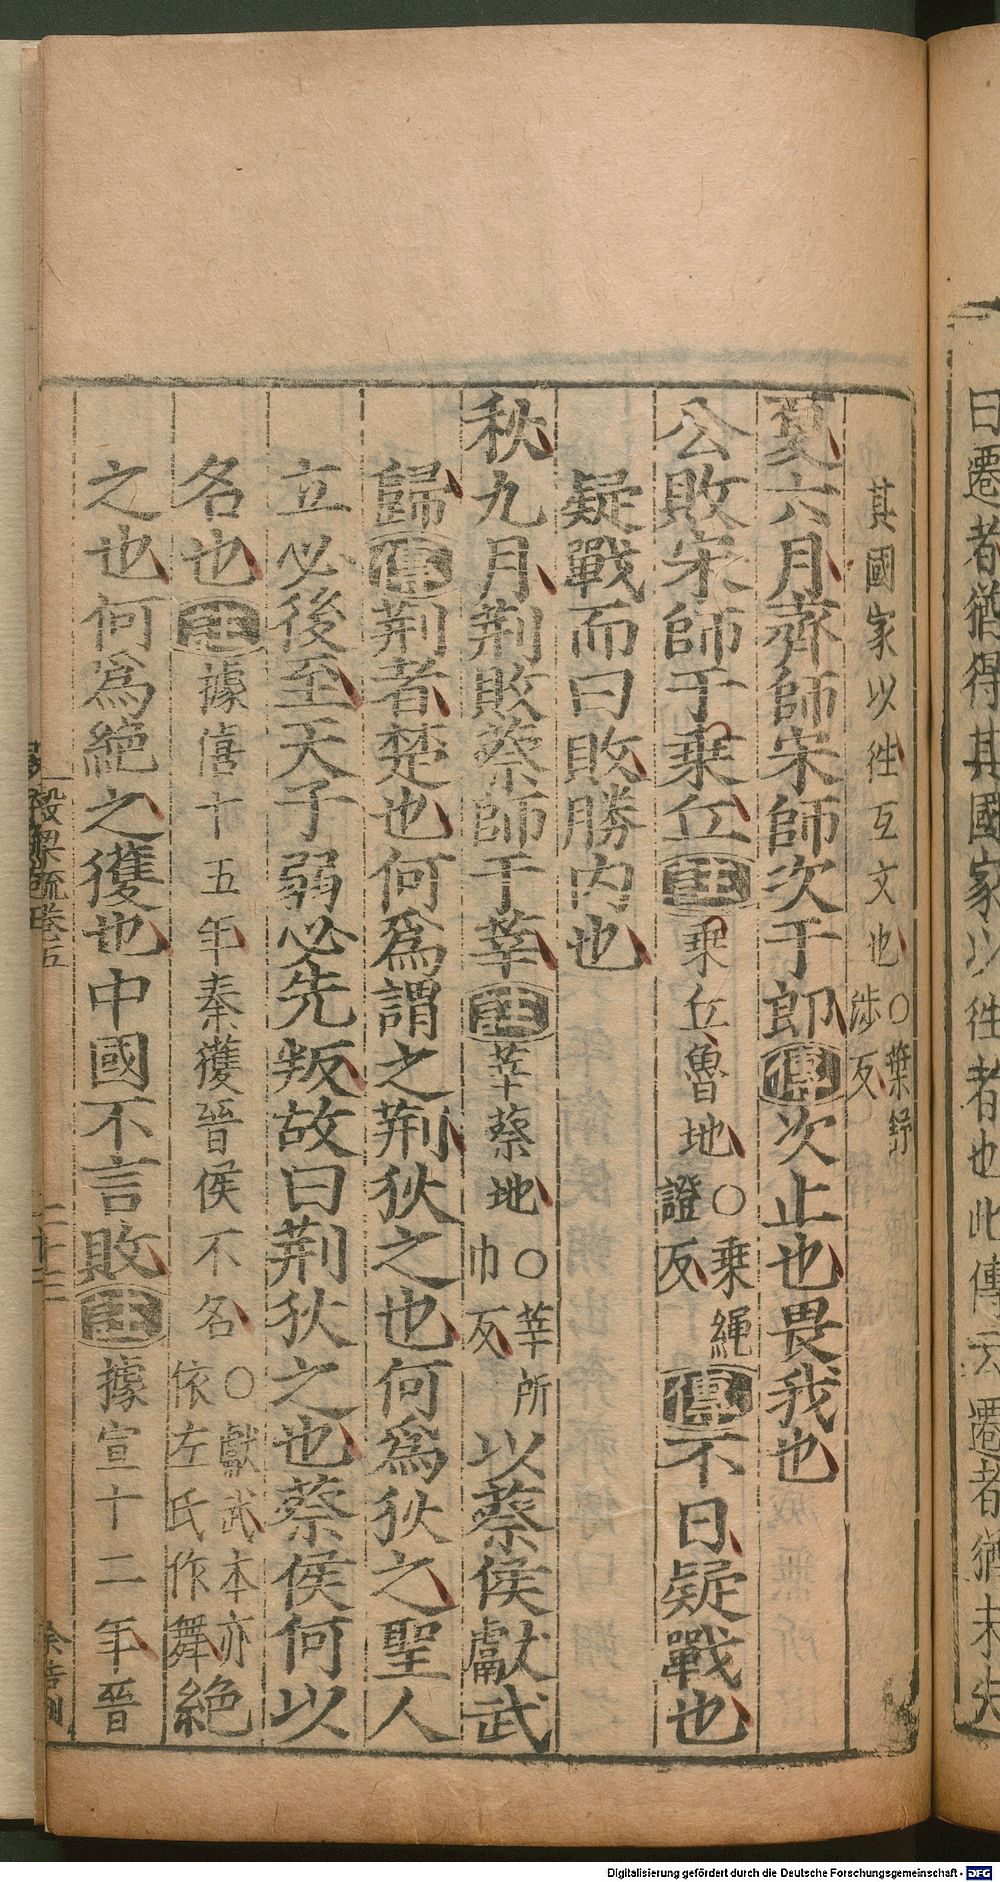 其國家以徃互文也○葉舒涉反
夏六月齊師宋師次于郎傳次止也畏我也
公敗宋師于乗丘註乗丘魯地○乗繩證反傳不日疑戰也
疑戰而曰敗勝内也
秋九月荆敗蔡師于莘註莘蔡地○莘所巾反以蔡侯獻武
歸傳荆者楚也何爲謂之荆狄之也何爲狄之聖人
立必後至天子弱必先叛故曰荆狄之也蔡侯何以
名也註據僖十五年秦獲晉侯不名○獻武本亦依左氏作舞絶
之也何爲絶之獲也中國不言敗註據宣十二年晉
穀梁疏卷五
二十二
曰遷者猶得其國家以徃者也此傳云遷者猶未失
Digitalisierung gefördert durch die Deutsche Forschungsgemeinschaft - DFG